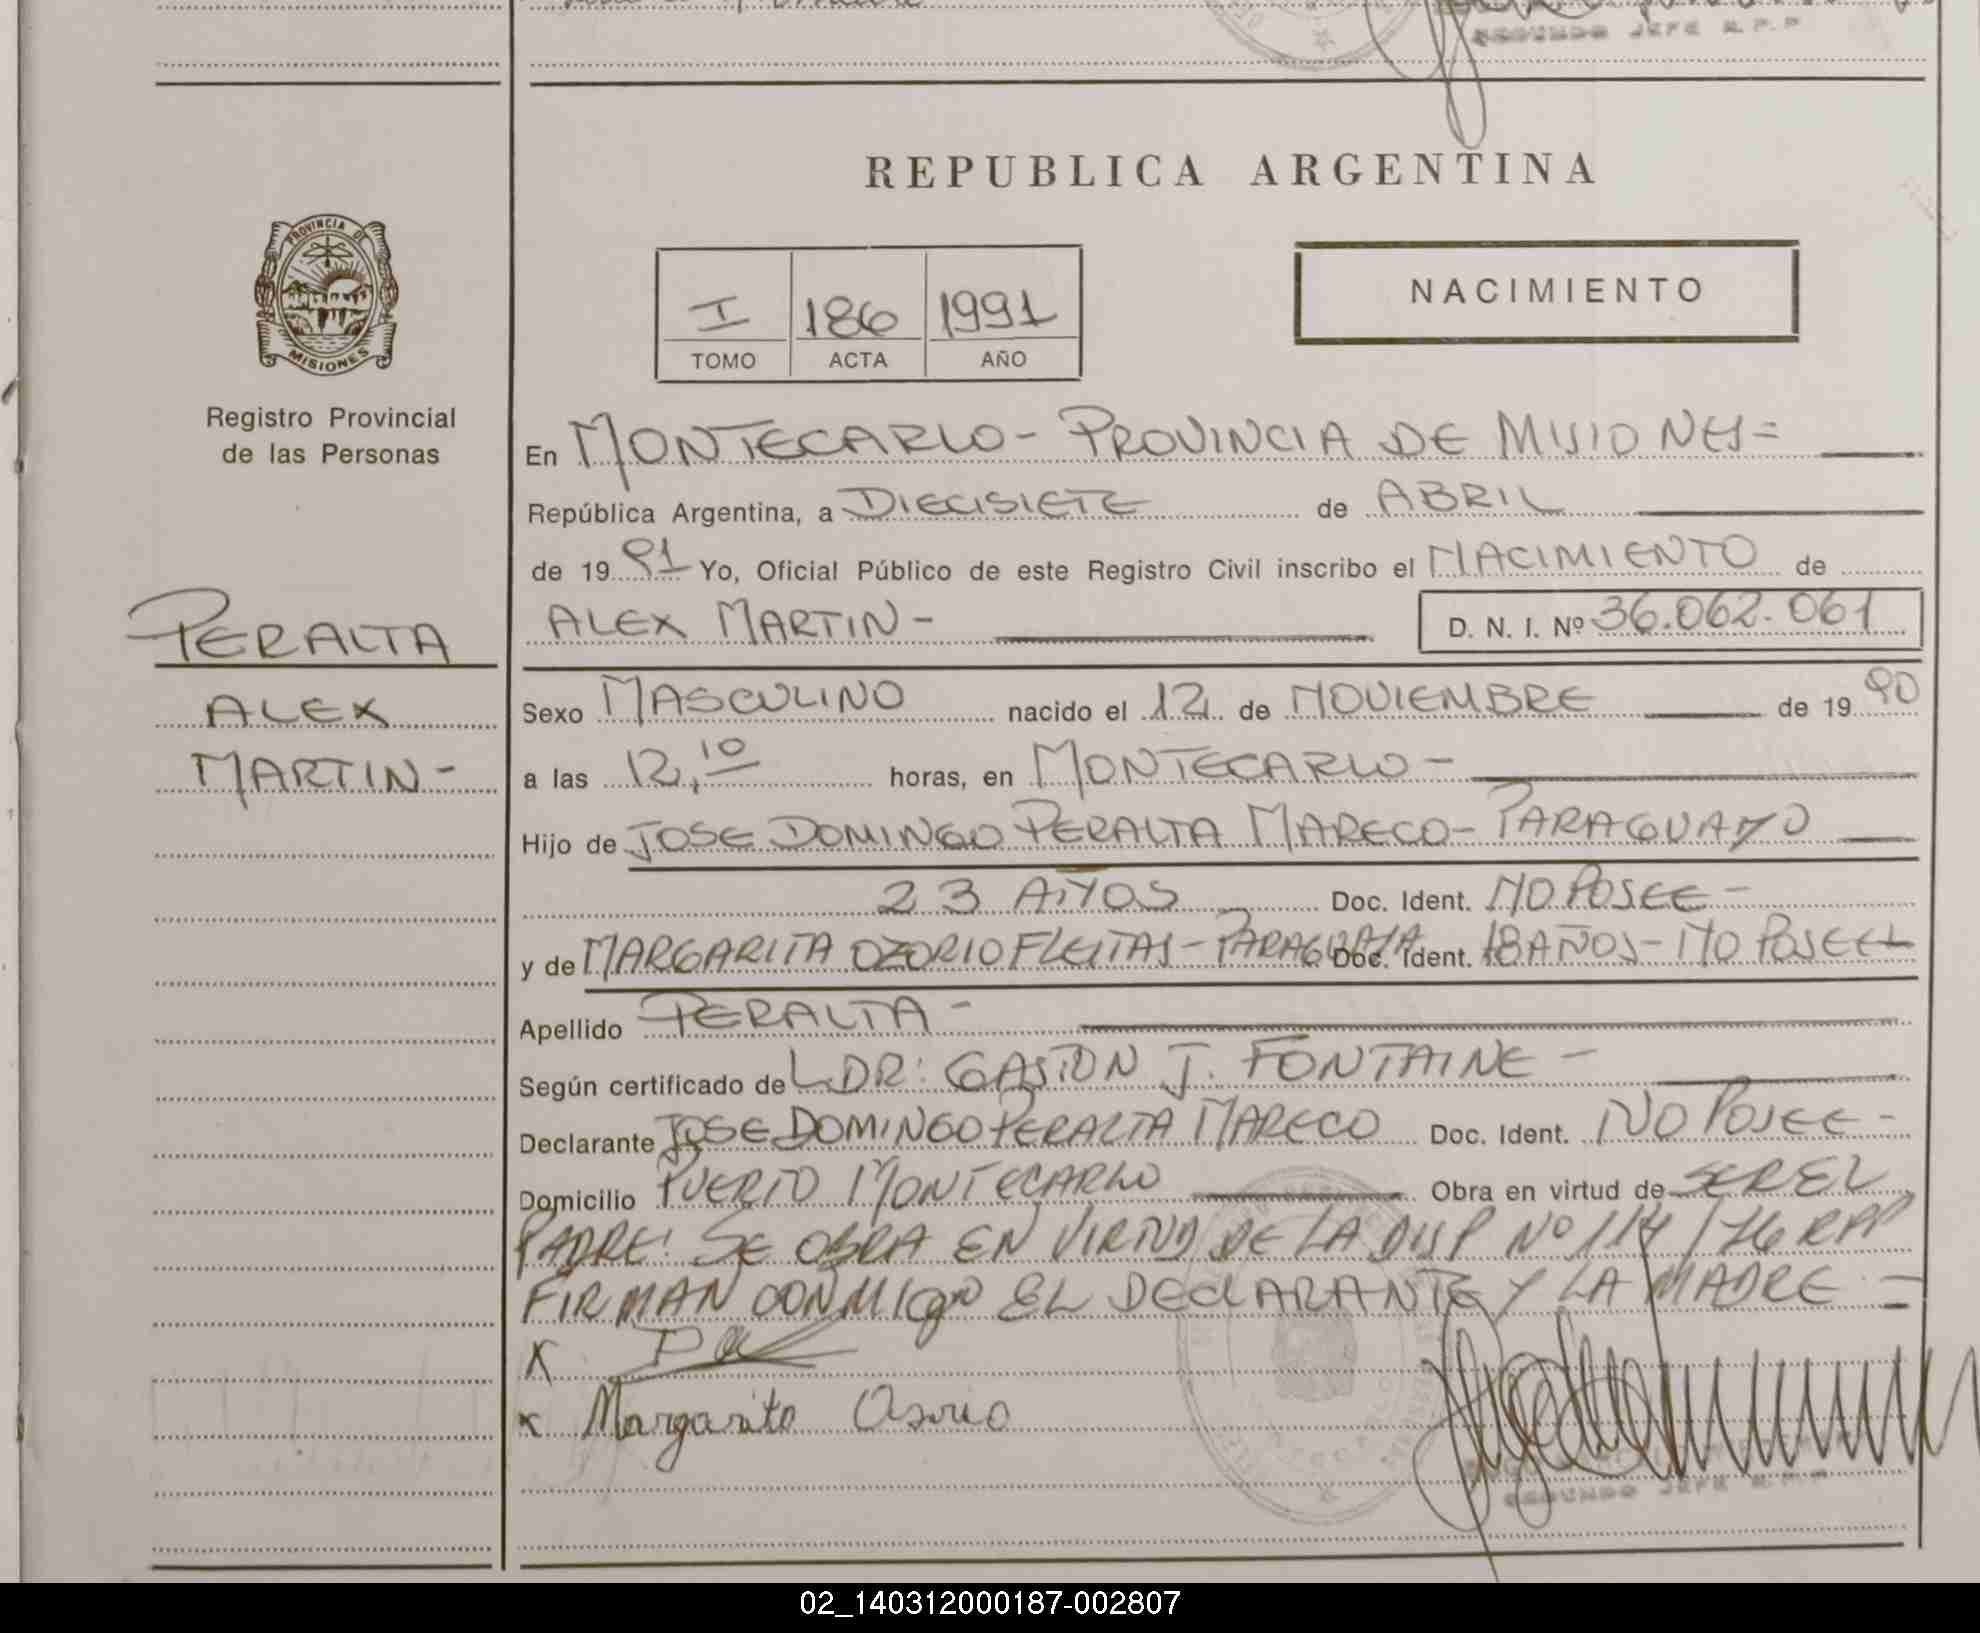 SEGUNDO JEFE R.P.P
REPUBLICA ARGENTINA
PROVINCIA DE
MISIONES
Registro Provincial
de las Personas
I 186 1991
TOMO ACTA AÑO
NACIMIENTO
En MONTECARLO - PROVINCIA DE MISIONES =
República Argentina, a DIECISIETE de ABRIL
de 19 91 Yo, Oficial Público de este Registro Civil inscribo el NACIMIENTO de
ALEX MARTIN - D. N. I. Nº 36.062.061
PERALTA
ALEX
MARTIN -
Sexo MASCULINO nacido el 12 de NOVIEMBRE de 19 90
a las 12,10 horas, en MONTECARLO -
Hijo de JOSE DOMINGO PERALTA MARECO - PARAGUAYO
23 AÑOS Doc. Ident. NO POSEE -
y de MARGARITA OZORIO FLEITAS - PARAGUAYA Doc. Ident. 18 AÑOS - NO POSEE
Apellido PERALTA -
Según certificado de L DR: GASTON J. FONTAINE -
Declarante JOSE DOMINGO PERALTA MARECO Doc. Ident. NO POSEE -
Domicilio PUERTO MONTECARLO Obra en virtud de SER EL
PADRE: SE OBRA EN VIRTUD DE LA DISP Nº 114/76 RPP
FIRMAN CONMIGO EL DECLARANTE Y LA MADRE. =
X
x Margarita Osorio
SEGUNDO JEFE R.P.P
02_140312000187-002807